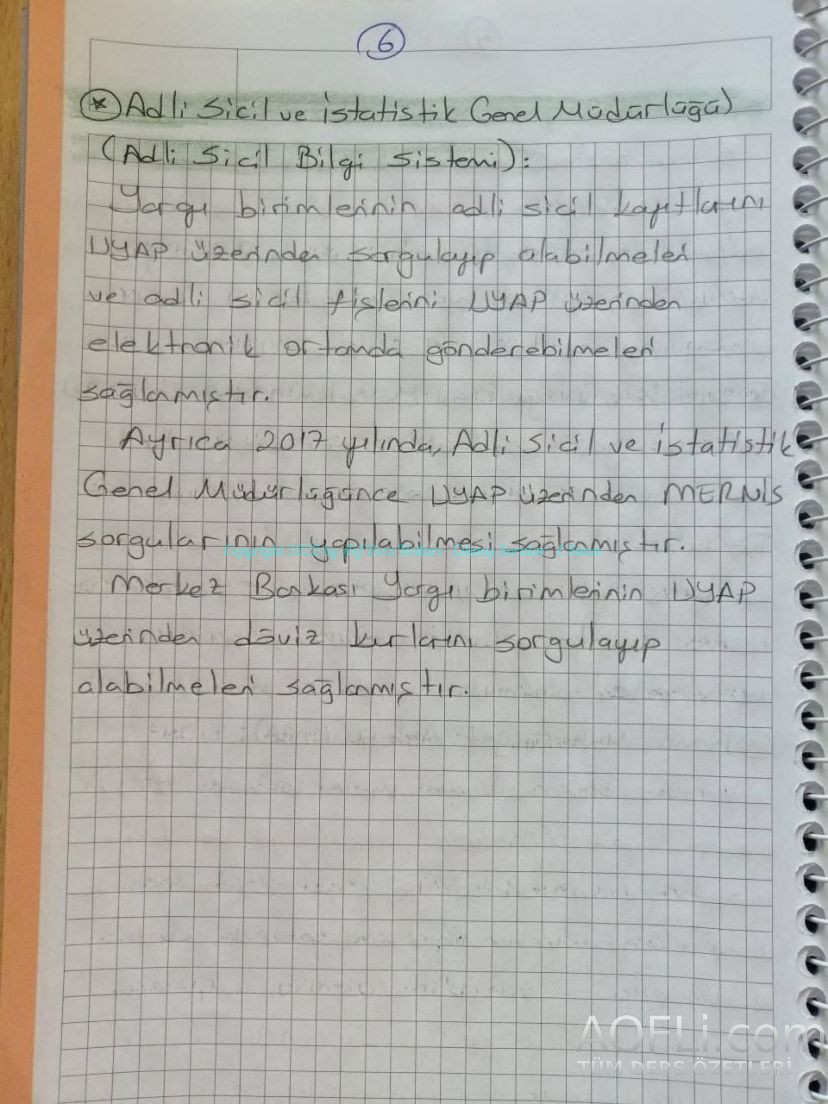 6
* Adli Sicil ve İstatistik Genel Müdürlüğü)
(Adli Sicil Bilgi Sistemi):
Yargı birimlerinin adli sicil kayıtlarını
UYAP üzerinden sorgulayıp alabilmeleri
ve adli sicil fişlerini UYAP üzerinden
elektronik ortamda gönderebilmeleri
sağlanmıştır.
Ayrıca 2017 yılında, Adli Sicil ve İstatistik
Genel Müdürlüğünce UYAP üzerinden MERNİS
sorgularının yapılabilmesi sağlanmıştır.
Merkez Bankası Yargı birimlerinin UYAP
üzerinden döviz kurlarını sorgulayıp
alabilmeleri sağlanmıştır.
AOFLi.com
TÜM DERS ÖZETLERİ